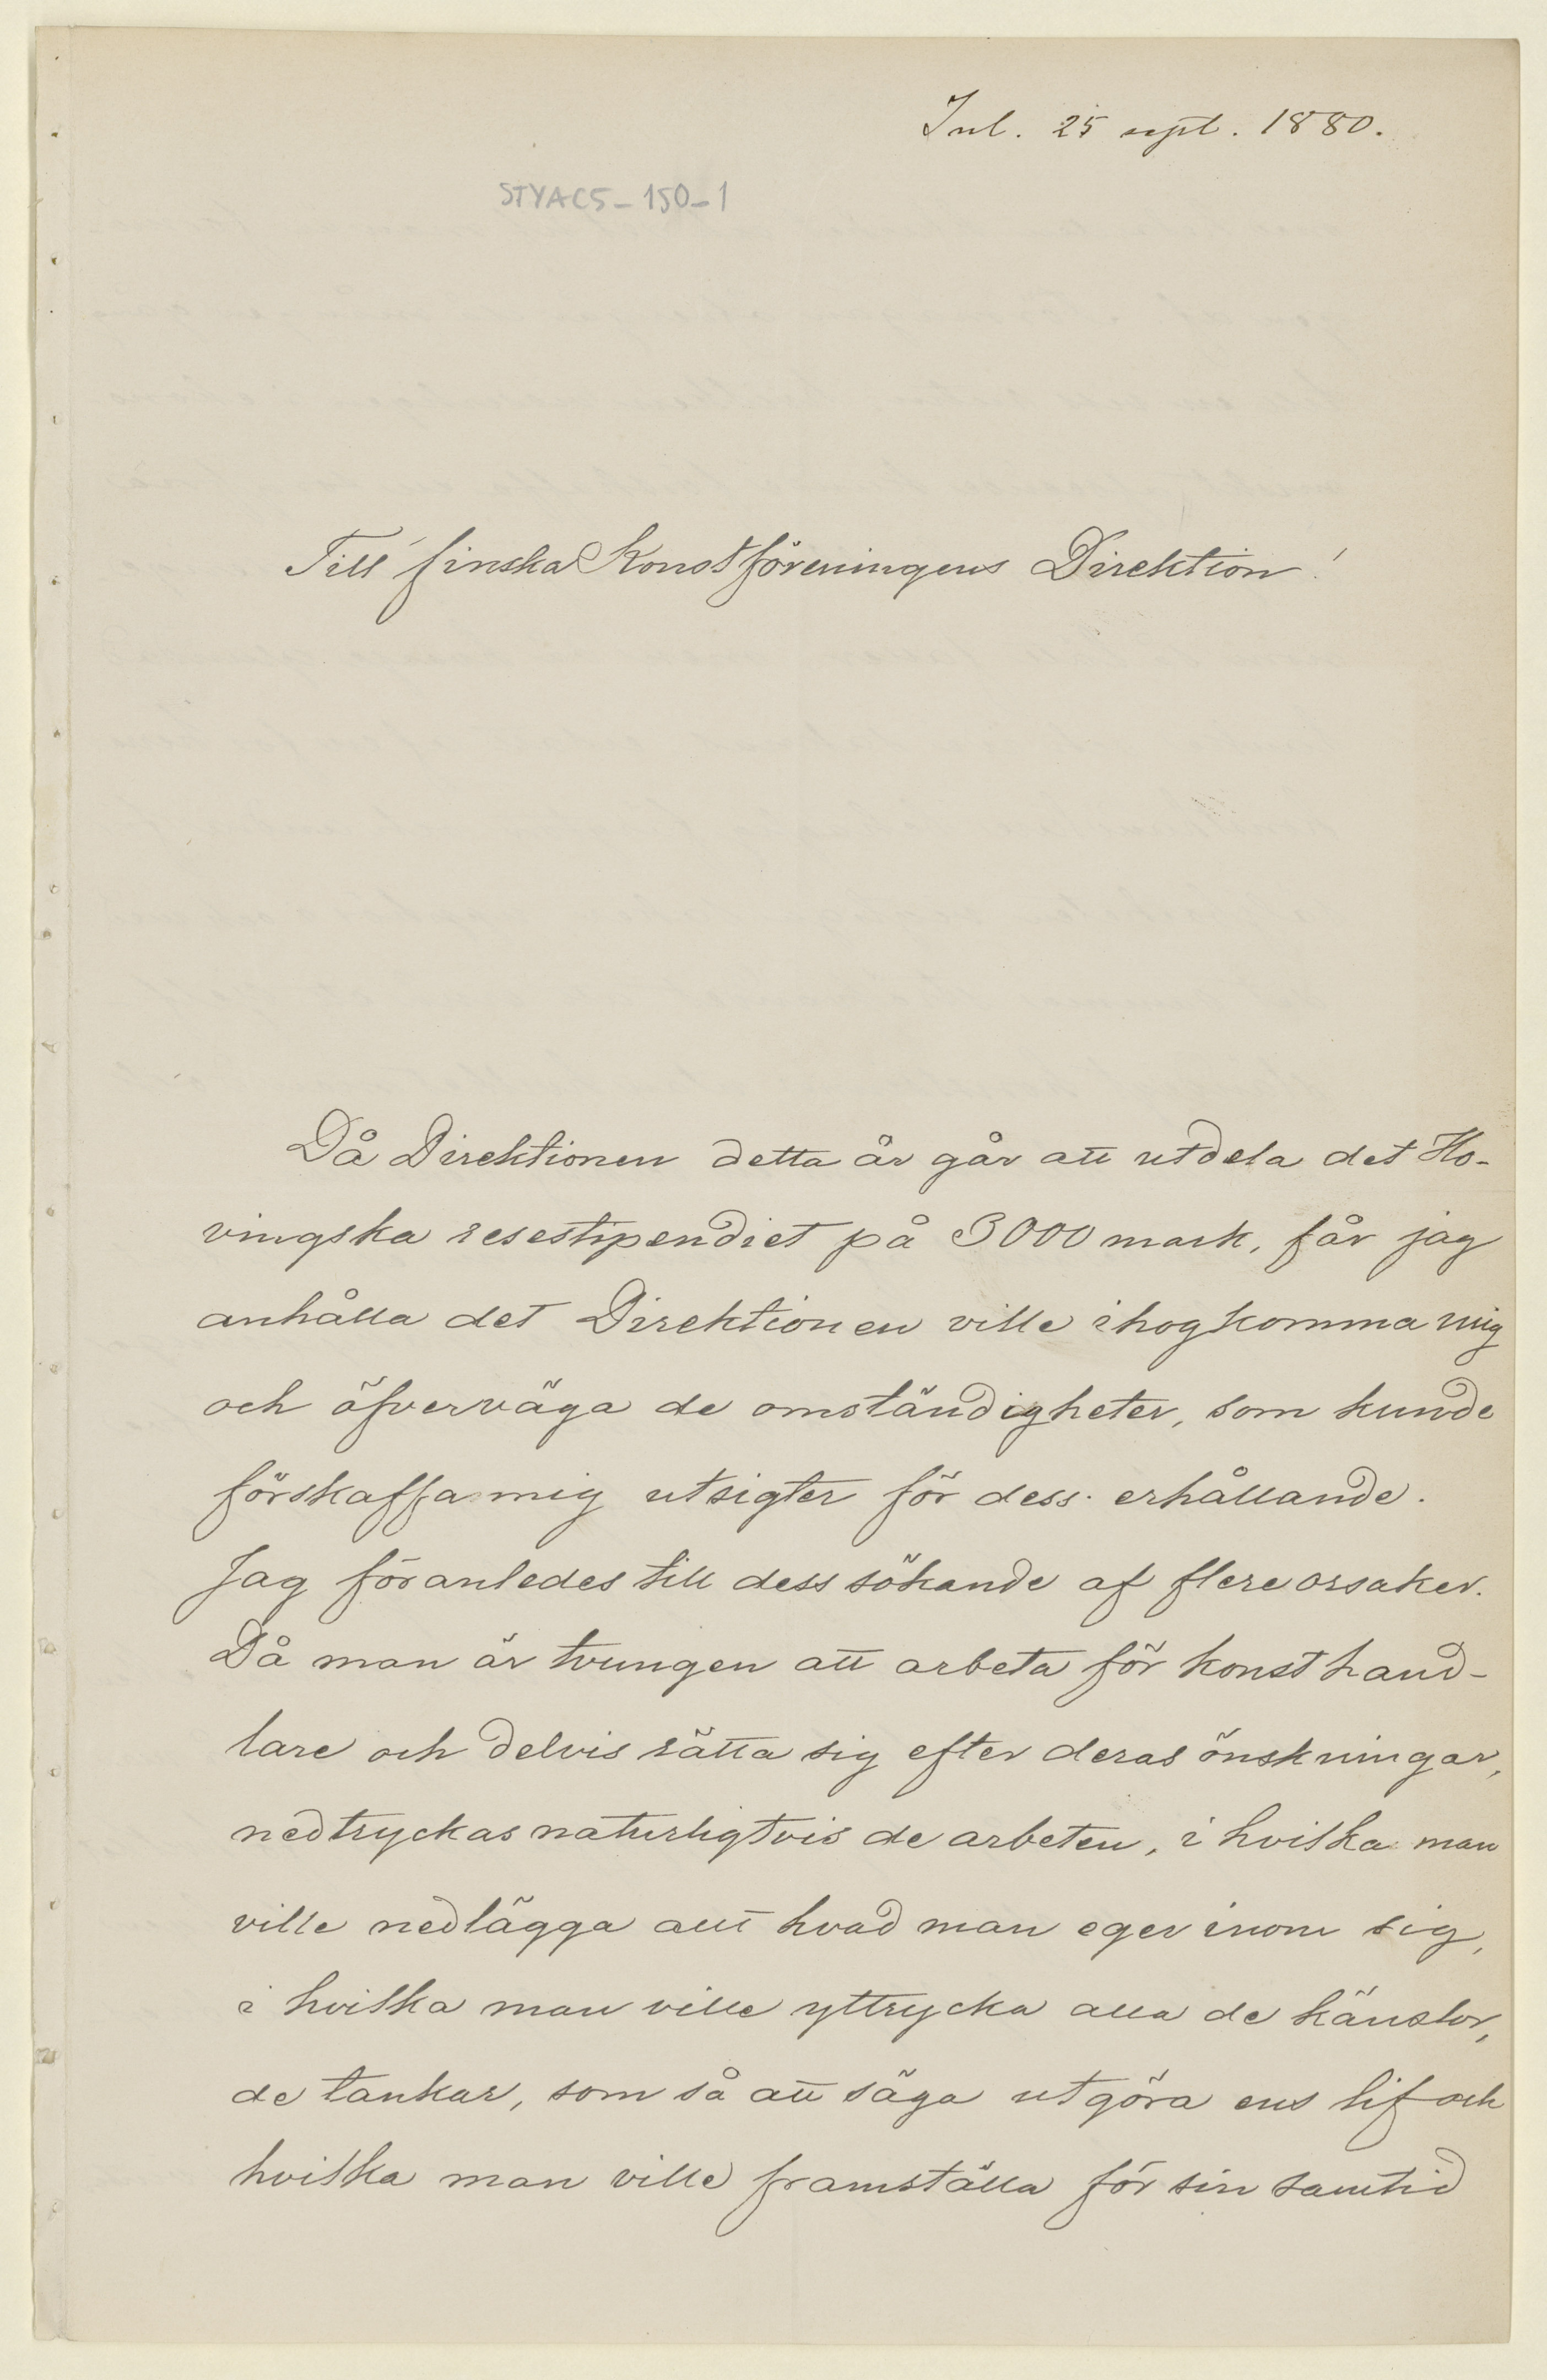 Inl. 25 sept. 1880.
STYAC5-150-1
Till finska Konstföreningens Direktion!
Då Direktionen detta år går att utdela det Ho-
vingska resestipendiet på 3000 mark, får jag
anhålla det Direktionen ville ihogkomma mig
och öfverväga de omständigheter, som kunde
förskaffa mig utsigter för dess erhållande.
Jag föranledes till dess sökande af flere orsaker.
Då man är tvungen att arbeta för konsthand-
lare och delvis rätta sig efter deras önskningar,
nedtryckas naturligtvis de arbeten, i hvilka man
ville nedlägga allt hvad man eger inom sig,
i hvilka man ville yttrycka alla de känslor,
de tankar, som så att säga utgöra ens lif och
hvilka man ville framställa för sin samtid